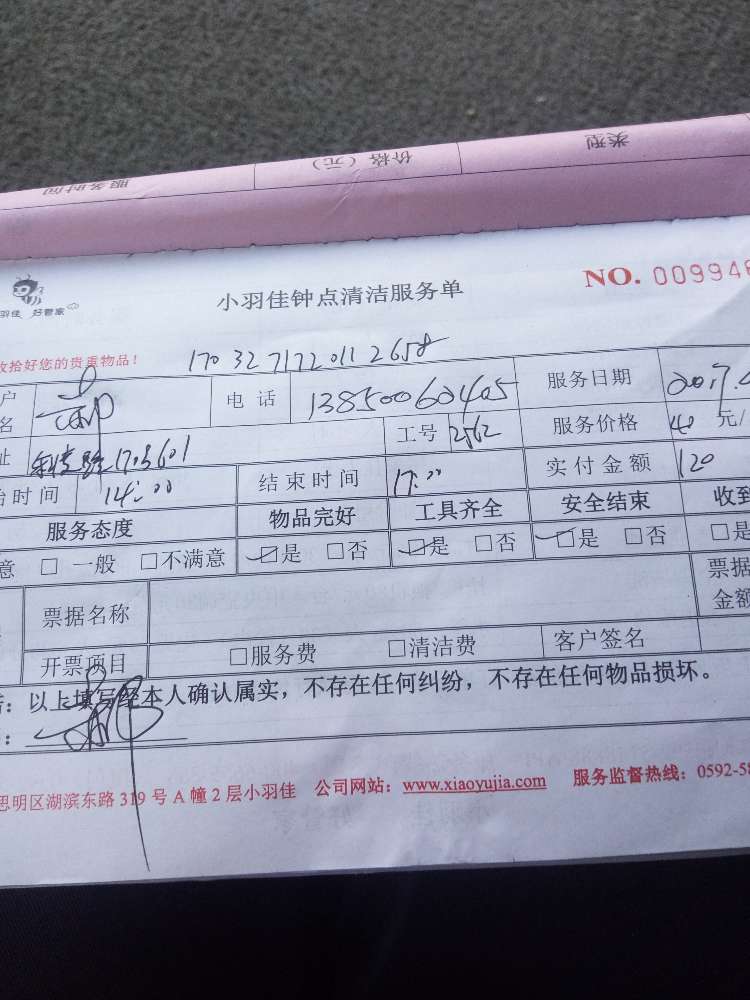 类型
价格（元）
服务时间
NO. 009946
小羽佳钟点清洁服务单
羽佳 好管家
收拾好您的贵重物品！
170327172011 2658
户 电话 13850060405 服务日期 2017.
名
址 170 601 工号 2562 服务价格 40 元/
始时间 14:00 结束时间 17:00 实付金额 120
服务态度 物品完好 工具齐全 安全结束 收到
意 □一般 □不满意 ☑是 □否 ☑是 □否 ☑是 □否 □是
票据名称 票据
金额
开票项目 □服务费 □清洁费 客户签名
：以上填写经本人确认属实，不存在任何纠纷，不存在任何物品损坏。
：
思明区湖滨东路 319 号 A 幢 2 层小羽佳 公司网站：www.xiaoyujia.com 服务监督热线：0592-58